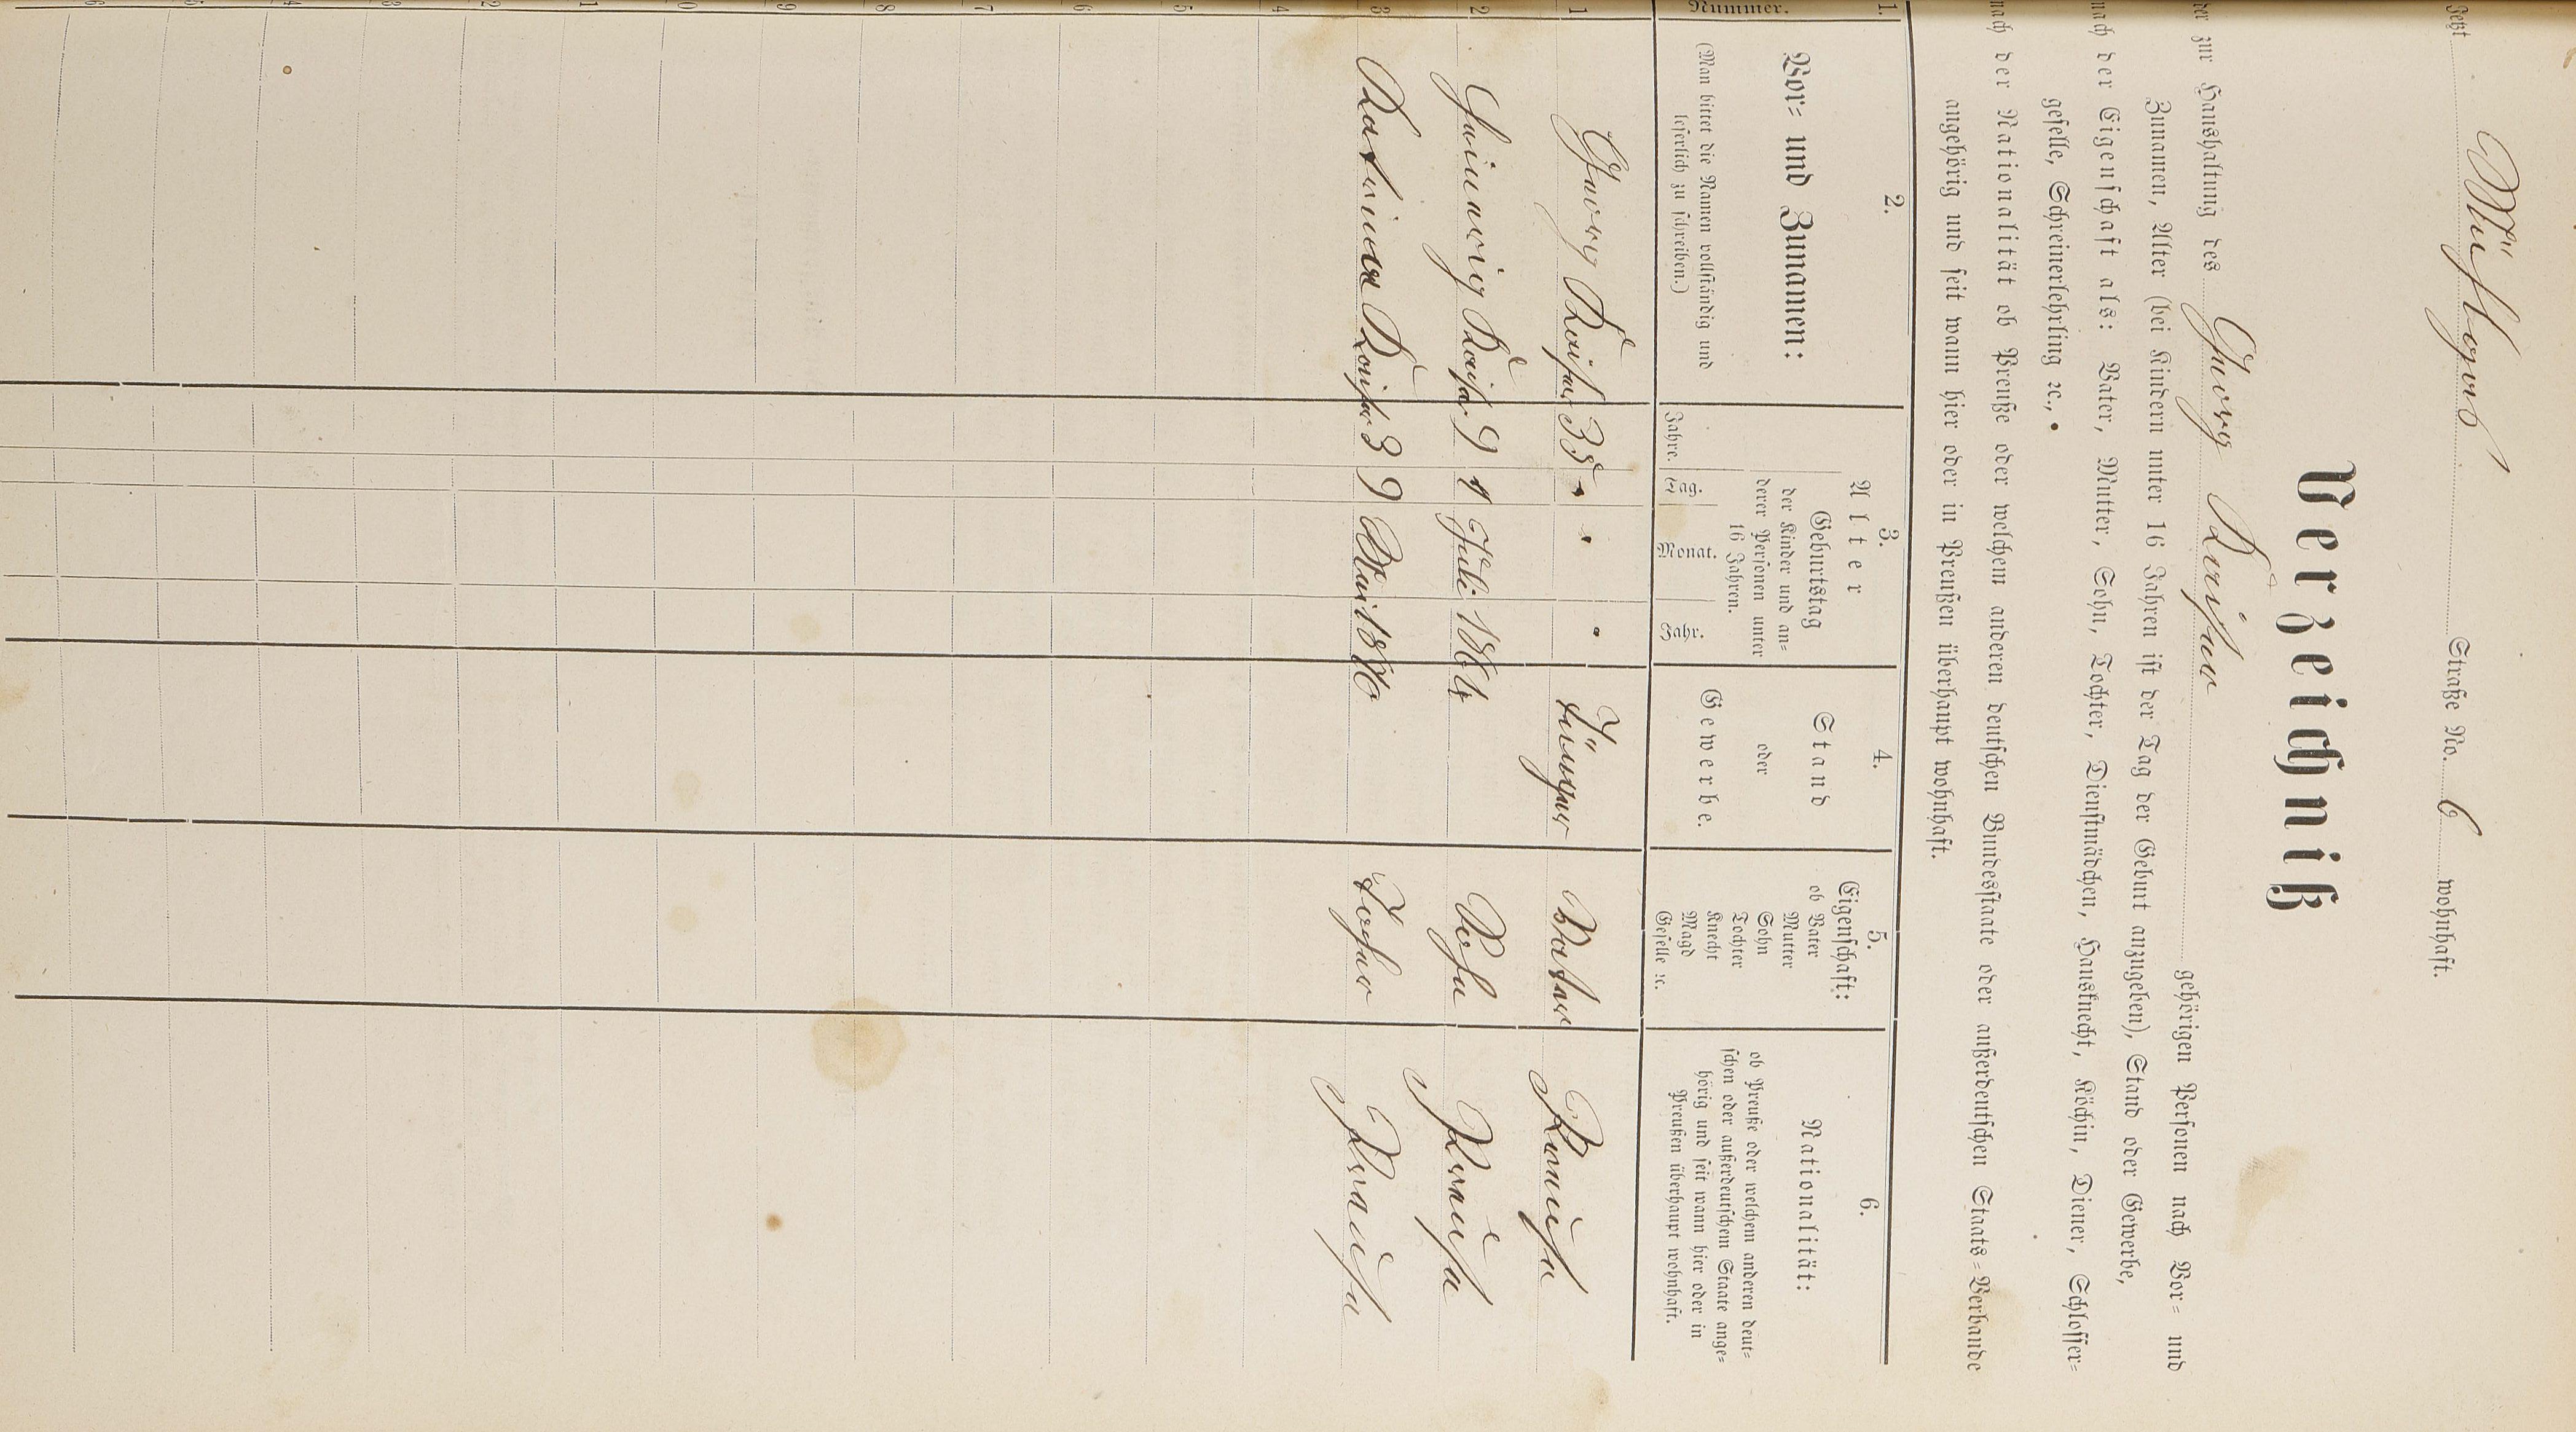 Jetzt Mühlgaß Straße No. 6 wohnhaft.
Verzeichniß
der zur Haushaltung des Georg Kaiser gehörigen Personen nach Vor= und
Zunamen, Alter (bei Kindern unter 16 Jahren ist der Tag der Geburt anzugeben), Stand oder Gewerbe,
nach der Eigenschaft als: Vater, Mutter, Sohn, Tochter, Dienstmädchen, Hausknecht, Köchin, Diener, Schlosser=
geselle, Schreinerlehrling ꝛc.,
nach der Nationalität ob Preuße oder welchem anderen deutschen Bundesstaate oder außerdeutschen Staats=Verbande
angehörig und seit wann hier oder in Preußen überhaupt wohnhaft.
1. 2. 3. 4. 5. 6.
Nummer.
Vor= und Zunamen:
(Man bittet die Namen vollständig und
leserlich zu schreiben.)
Alter
Jahre.
Geburtstag
der Kinder und an=
derer Personen unter
16 Jahren.
Tag. Monat. Jahr.
Stand
oder
Gewerbe.
Eigenschaft:
ob Vater
Mutter
Sohn
Tochter
Knecht
Magd
Geselle ꝛc.
Nationalität:
ob Preuße oder welchem anderen deut=
schen oder außerdeutschem Staate ange=
hörig und seit wann hier oder in
Preußen überhaupt wohnhaft.
1 Georg Kaiser 35 Tüncher Vater Preuße
2 Heinerig Kaiser 9 1 Juli 1864 Sohn Preuße
3 Katrina Kaiser 3 9 Mai 1870 Tochter Preuße
4
5
6
7
8
9
0
1
2
3
4
5
6